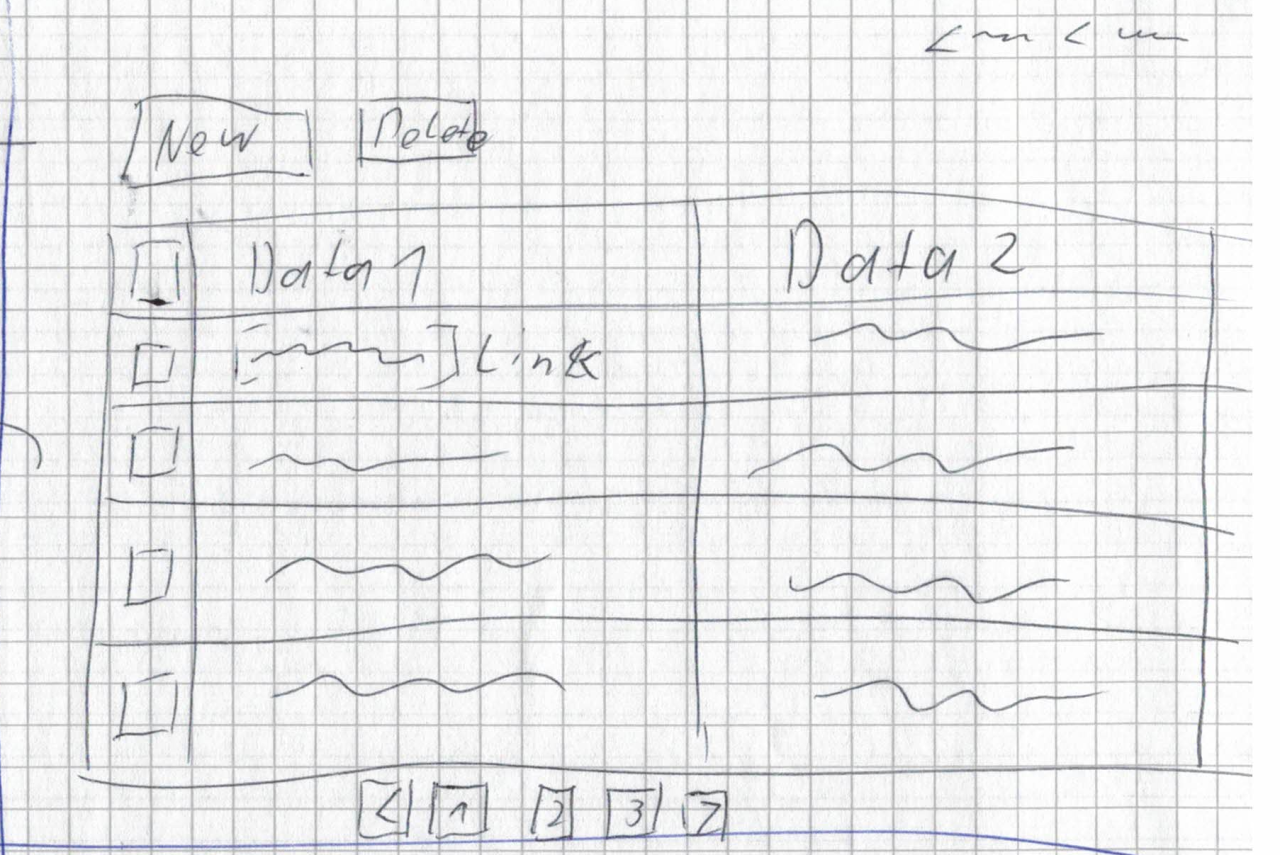 New Delete
Data 1 Data 2
Link
< 1 2 3 >